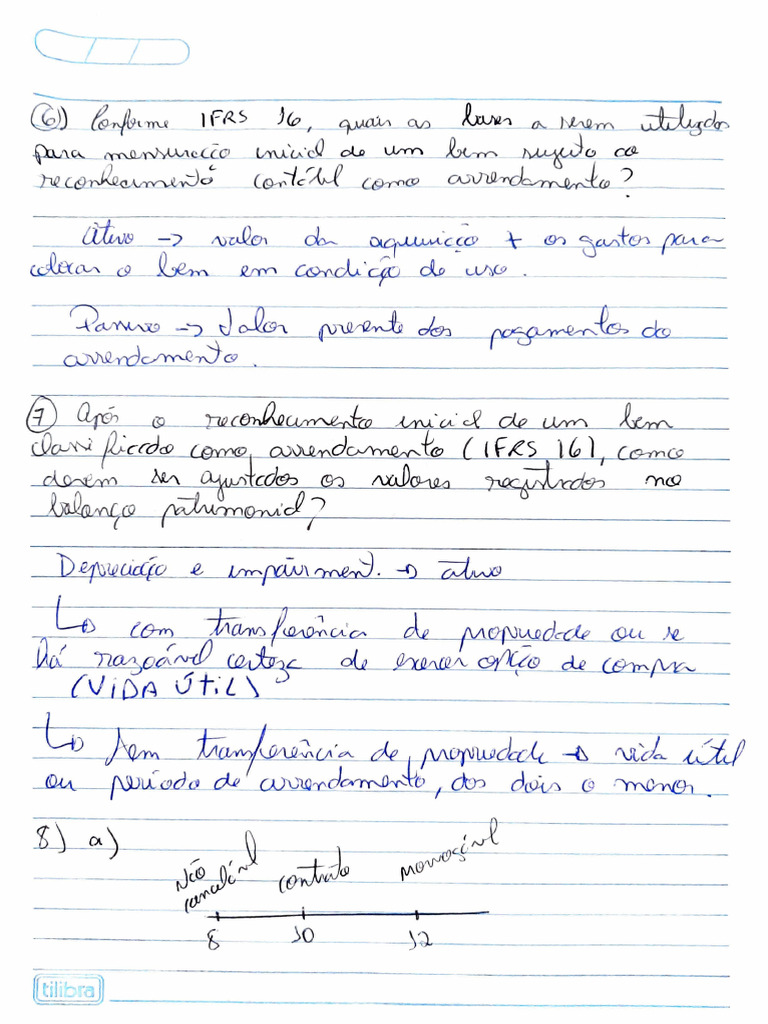 6) Conforme IFRS 16, quais as bases a serem utilizados
para mensuração inicial de um bem sujeito ao
reconhecimento contábil como arrendamento?
Ativo → valor da aquisição + os gastos para
colocar o bem em condição de uso.
Passivo → Valor presente dos pagamentos do
arrendamento.
7 Após o reconhecimento inicial de um bem
classificado como arrendamento (IFRS 16), como
devem ser ajustados os valores registrados no
balanço patrimonial?
Depreciação e impairment. → ativo
↳ com transferência de propriedade ou se
há razoável certeza de exercer opção de compra
(VIDA ÚTIL)
↳ Sem transferência de propriedade → vida útil
ou período de arrendamento, dos dois o menor.
8) a)
Não cancelável contrato
8 10 12
tilibra